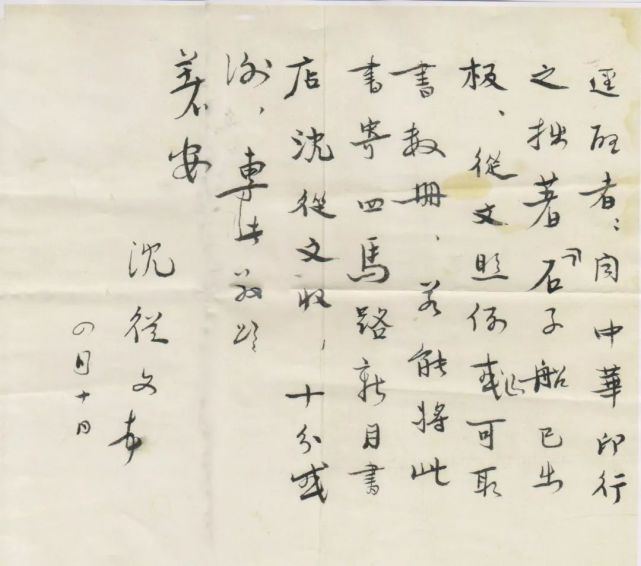 逕啟者：闻中華印行
之拙著『石子船』已出
板、從文照例或可取
書数冊，若能將此
書寄四馬路新月書
店沈從文收，十分感
謝，專此敬頌
著安
沈從文
四月十日